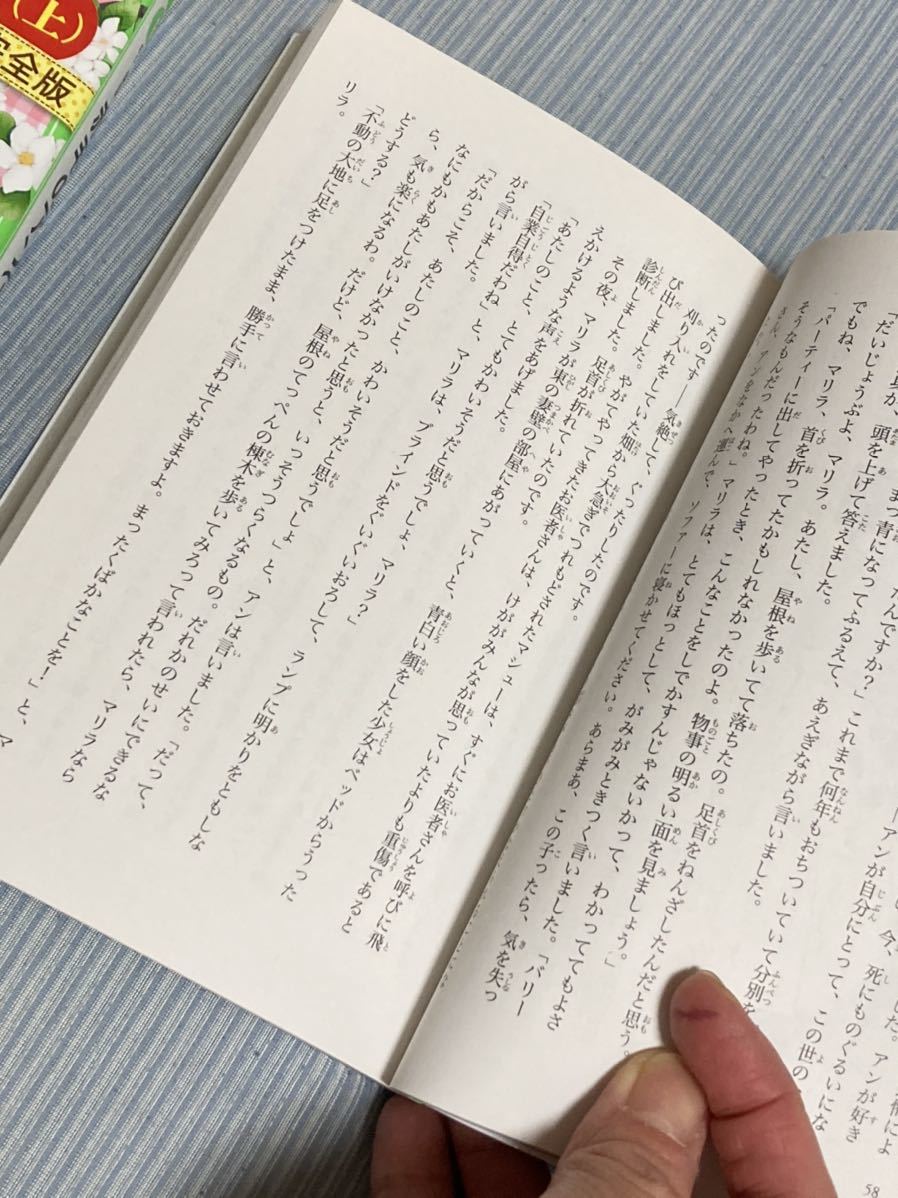 した。アンが好き
今、死にものぐるいにな
――アンが自分にとって、この世の
たんですか？」これまで何年もおちついていて分別を
まっ青になってふるえて、あえぎながら言いました。
頭を上げて答えました。
「だいじょうぶよ、マリラ。あたし、屋根を歩いてて落ちたの。足首をねんざしたんだと思う。
でもね、マリラ、首を折ってたかもしれなかったのよ。物事の明るい面を見ましょう。」
「パーティーに出してやったとき、こんなことをしでかすんじゃないかって、わかっててもよさ
そうなもんだったわね。」マリラは、とてもほっとして、がみがみときつく言いました。「バリー
さん、アンをなかへ運んで、ソファーに寝かせてください。あらまあ、この子ったら、気を失っ
58
ったのです――気絶して、ぐったりしたのです。
刈り入れをしていた畑から大急ぎでつれもどされたマシューは、すぐにお医者さんを呼びに飛
び出しました。やがてやってきたお医者さんは、けががみんなが思っていたよりも重傷であると
診断しました。足首が折れていたのです。
その夜、マリラが東の妻壁の部屋にあがっていくと、青白い顔をした少女はベッドからうった
えかけるような声をあげました。
「あたしのこと、とてもかわいそうだと思うでしょ、マリラ？」
「自業自得だわね」と、マリラは、ブラインドをぐいぐいおろして、ランプに明かりをともしな
がら言いました。
「だからこそ、あたしのこと、かわいそうだと思うでしょ」と、アンは言いました。「だって、
なにもかもあたしがいけなかったと思うと、いっそうつらくなるもの。だれかのせいにできるな
ら、気も楽になるわ。だけど、屋根のてっぺんの棟木を歩いてみろって言われたら、マリラなら
どうする？」
「不動の大地に足をつけたまま、勝手に言わせておきますよ。まったくばかなことを！」と、マ
リラ。
(上)
完全版